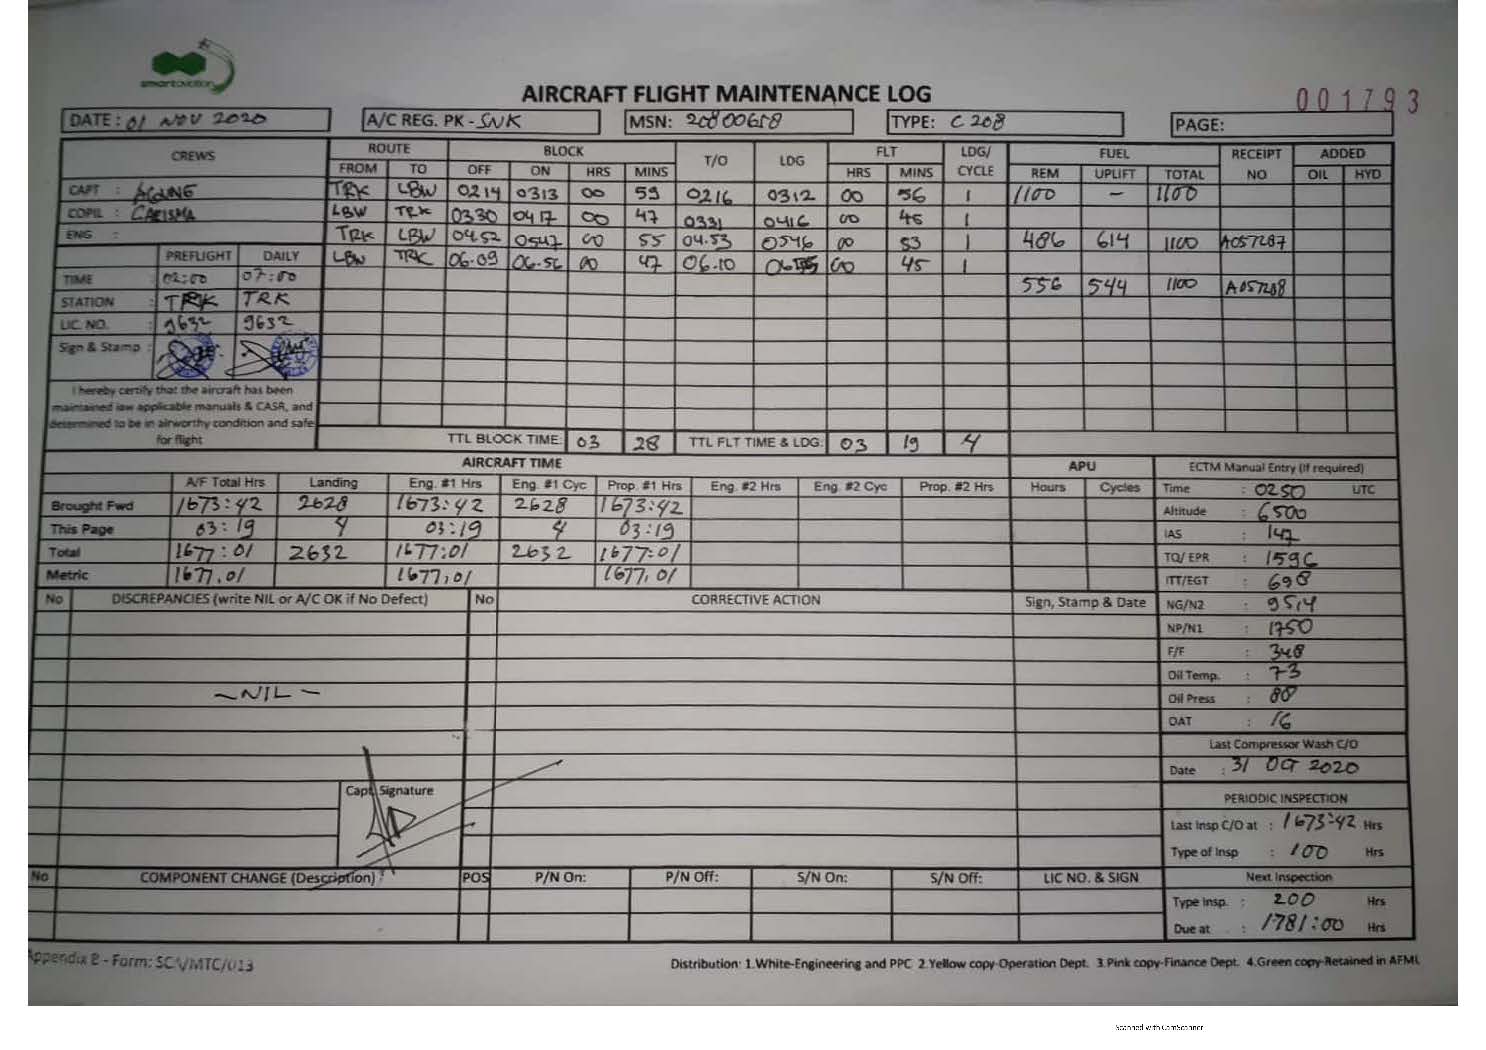 smartaviation
AIRCRAFT FLIGHT MAINTENANCE LOG
001793
DATE : 01 NOV 2020 A/C REG. PK - SNK MSN: 20800658 TYPE: C 208 PAGE:
CREWS ROUTE BLOCK T/O LDG FLT LDG/CYCLE FUEL RECEIPT NO ADDED
FROM TO OFF ON HRS MINS HRS MINS REM UPLIFT TOTAL OIL HYD
CAPT : AGUNG TRK LBW 0214 0313 00 59 0216 0312 00 56 1 1100 - 1100
COPIL : CARISMA LBW TRK 0330 0417 00 47 0331 0416 00 45 1
ENG : TRK LBW 0452 0547 00 55 04.53 0546 00 53 1 486 614 1100 A057287
PREFLIGHT DAILY LBW TRK 06.09 06.56 00 47 06.10 0655 00 45 1
TIME : 02:00 07:00 556 544 1100 A057288
STATION : TRK TRK
LIC. NO. : 9632 9632
Sign & Stamp :
I hereby certify that the aircraft has been
maintained iaw applicable manuals & CASR, and
determined to be in airworthy condition and safe
for flight
TTL BLOCK TIME: 03 28 TTL FLT TIME & LDG: 03 19 4
AIRCRAFT TIME APU ECTM Manual Entry (If required)
A/F Total Hrs Landing Eng. #1 Hrs Eng. #1 Cyc Prop. #1 Hrs Eng. #2 Hrs Eng. #2 Cyc Prop. #2 Hrs Hours Cycles Time : 0250 UTC
Brought Fwd 1673:42 2628 1673:42 2628 1673:42 Altitude : 6500
This Page 03:19 4 03:19 4 03:19 IAS : 147
Total 1677:01 2632 1677:01 2632 1677:01 TQ/ EPR : 1596
Metric 1677,01 1677,01 1677,01 ITT/EGT : 698
No DISCREPANCIES (write NIL or A/C OK if No Defect) No CORRECTIVE ACTION Sign, Stamp & Date NG/N2 : 95,4
NP/N1 : 1750
F/F : 348
Oil Temp. : 73
~NIL~ Oil Press : 88
OAT : 16
Last Compressor Wash C/O
Date : 31 OCT 2020
Capt. Signature
PERIODIC INSPECTION
Last Insp C/O at : 1673:42 Hrs
Type of Insp : 100 Hrs
No COMPONENT CHANGE (Description) POS P/N On: P/N Off: S/N On: S/N Off: LIC NO. & SIGN Next Inspection
Type Insp. : 200 Hrs
Due at : 1781:00 Hrs
Appendix B - Form: SCA/MTC/013
Distribution: 1.White-Engineering and PPC 2.Yellow copy-Operation Dept. 3.Pink copy-Finance Dept. 4.Green copy-Retained in AFML
Scanned with CamScanner